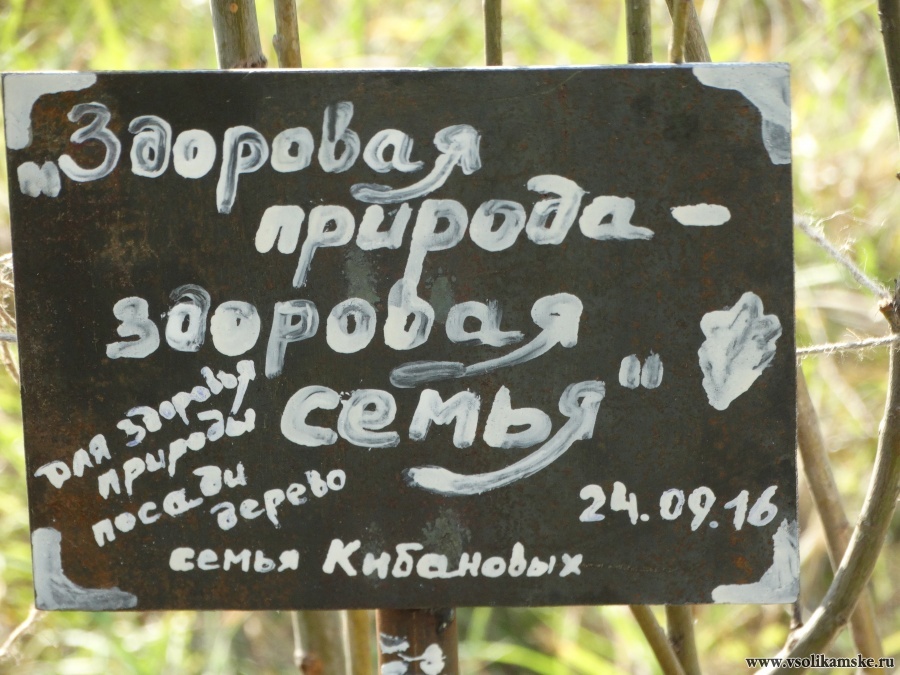 „Здоровая
природа –
здоровая
семья"
для здоровья
природы
посади
дерево
24.09.16
семья Кибановых
www.vsolikamske.ru